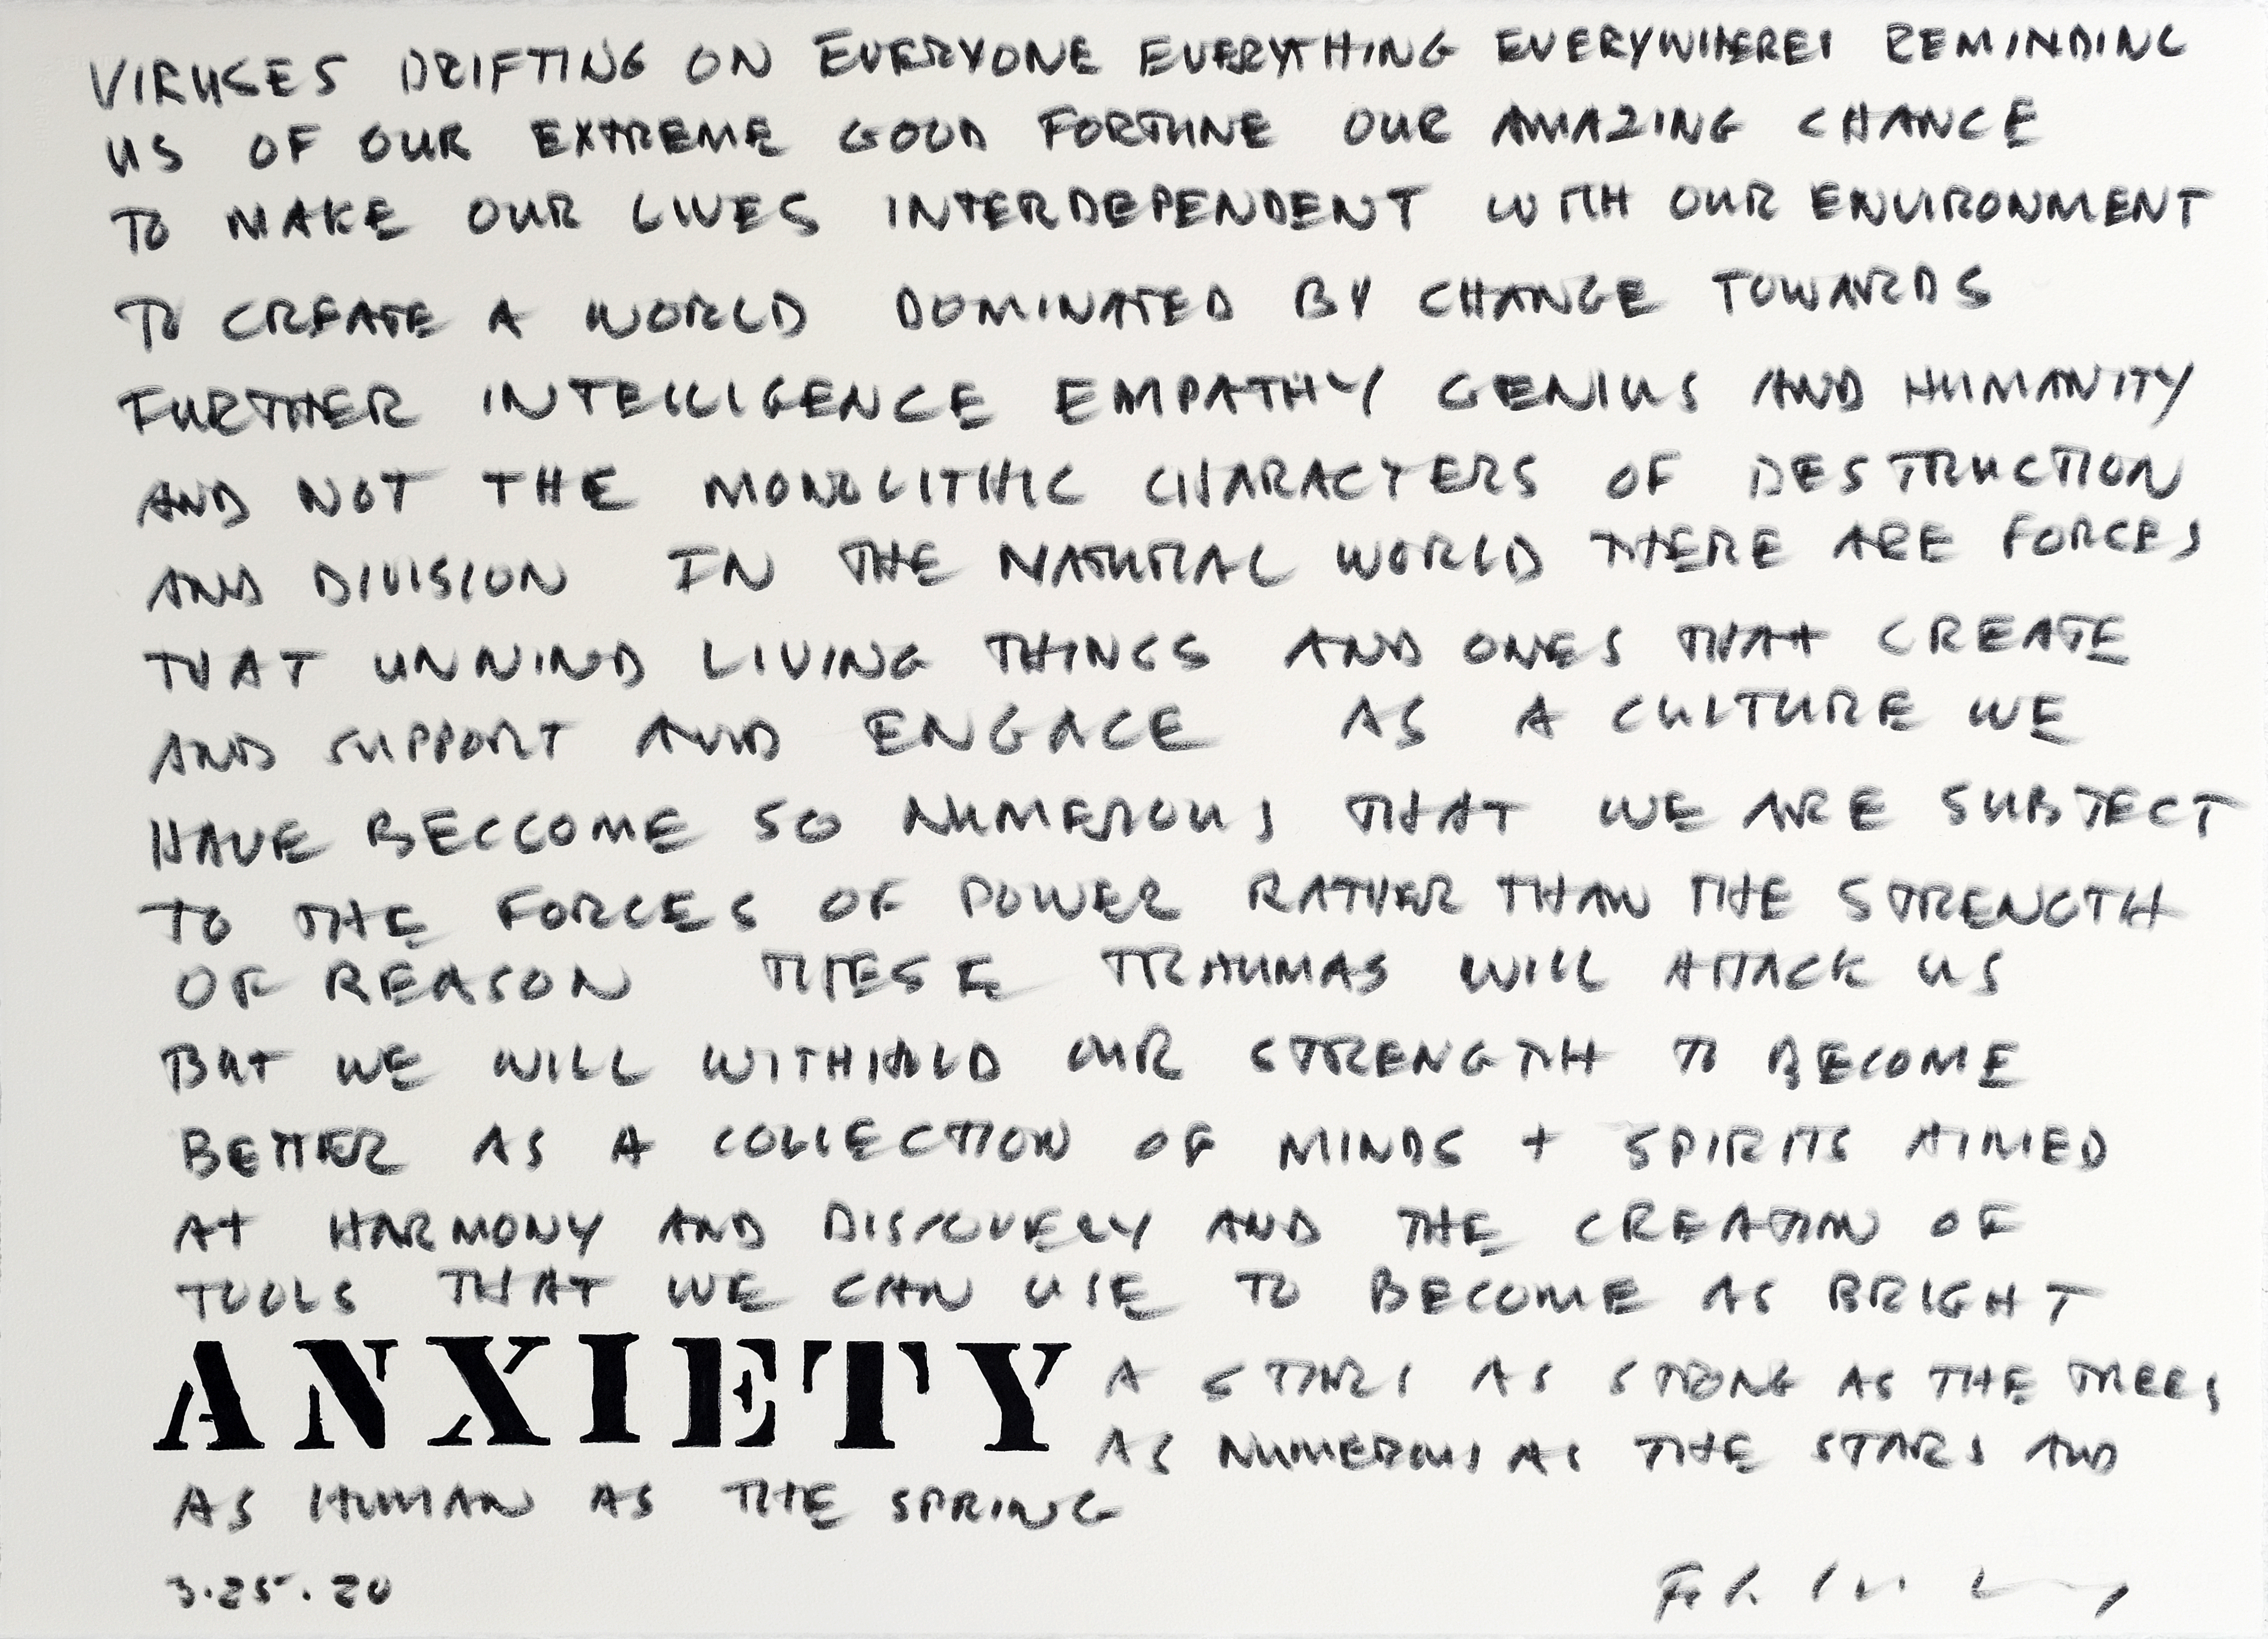 VIRUSES DRIFTING ON EVERYONE EVERYTHING EVERYWHERE REMINDING
US OF OUR EXTREME GOOD FORTUNE OUR AMAZING CHANCE
TO MAKE OUR LIVES INTERDEPENDENT WITH OUR ENVIRONMENT
TO CREATE A WORLD DOMINATED BY CHANGE TOWARDS
FURTHER INTELLIGENCE EMPATHY GENIUS AND HUMANITY
AND NOT THE MONOLITHIC CHARACTERS OF DESTRUCTION
AND DIVISION IN THE NATURAL WORLD THERE ARE FORCES
THAT UNWIND LIVING THINGS AND ONES THAT CREATE
AND SUPPORT AND ENGAGE AS A CULTURE WE
HAVE BECCOME SO NUMEROUS THAT WE ARE SUBJECT
TO THE FORCES OF POWER RATHER THAN THE STRENGTH
OF REASON THESE TRAUMAS WILL ATTACK US
BUT WE WILL WITHHOLD OUR STRENGTH TO BECOME
BETTER AS A COLLECTION OF MINDS + SPIRITS AIMED
AT HARMONY AND DISCOVERY AND THE CREATION OF
TOOLS THAT WE CAN USE TO BECOME AS BRIGHT
ANXIETY A STARS AS STRONG AS THE TREES
AS NUMEROUS AS THE STARS AND
AS HUMAN AS THE SPRING
3.25.20